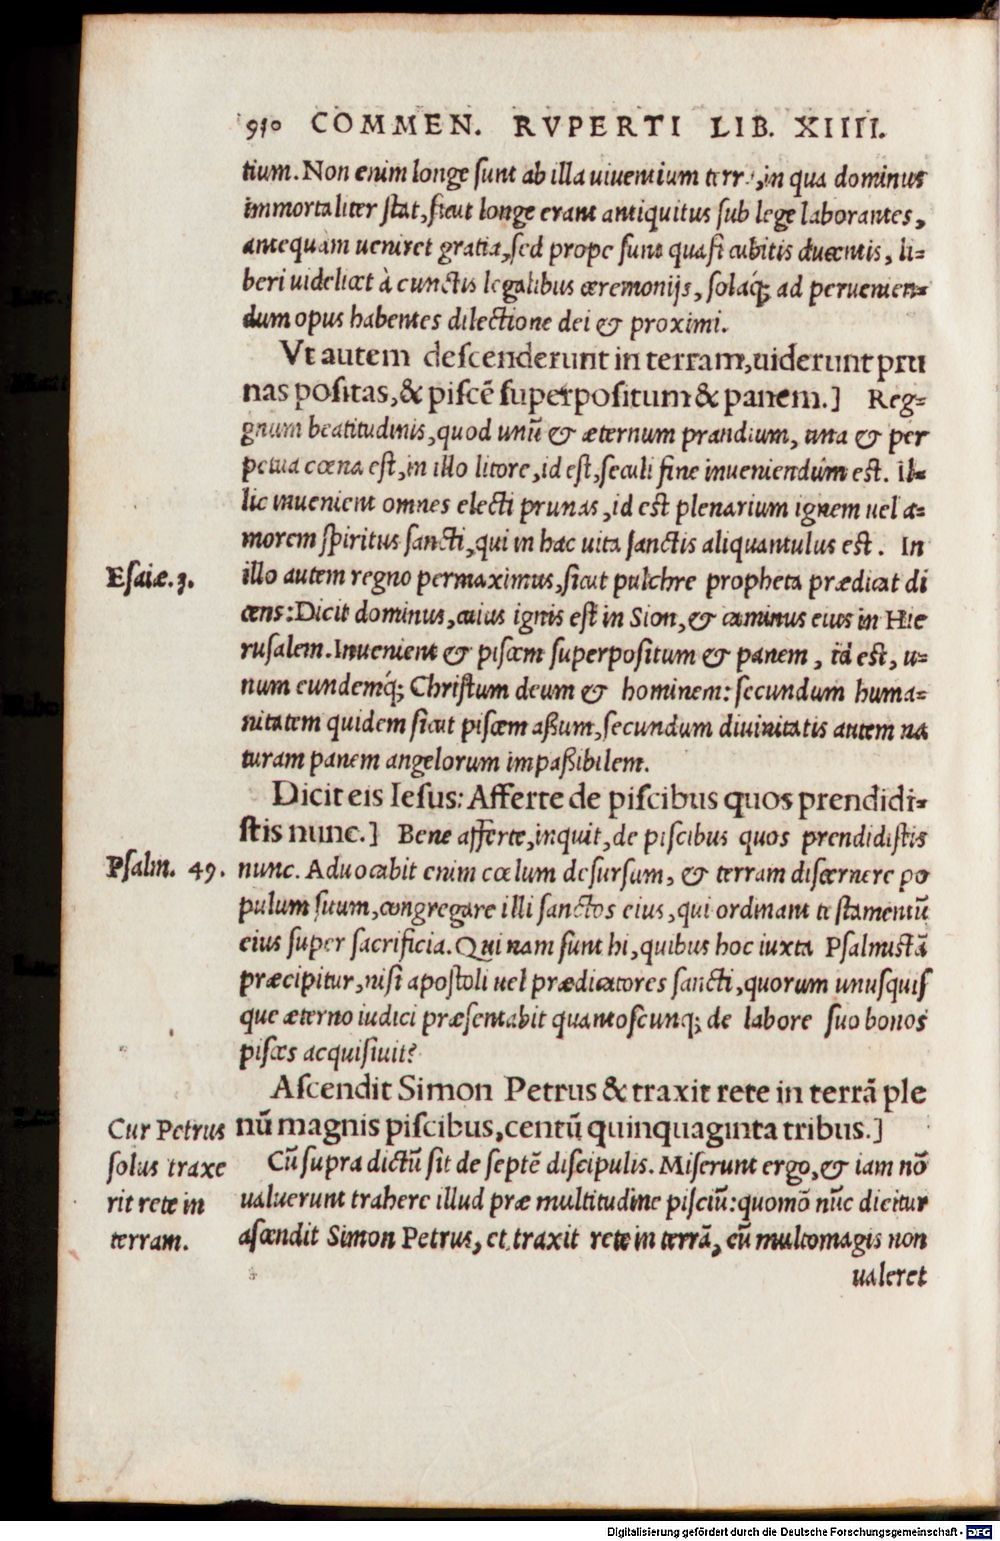 910 COMMEN. RVPERTI LIB. XIIII.
tium. Non enim longe ſunt ab illa uiuentium terra, in qua dominus
immortaliter ſtat, ſicut longe erant antiquitus ſub lege laborantes,
antequàm ueniret gratia, ſed prope ſunt quaſi cubitis ducentis, li-
beri uidelicet à cunctis legalibus ceremonijs, ſoláq́; ad peruenien-
dum opus habentes dilectione dei & proximi.
Vt autem deſcenderunt in terram, uiderunt pru
nas poſitas, & piſcē ſuperpoſitum & panem.] Reg-
gnum beatitudinis, quod unū & æternum prandium, una & per
petua cœna eſt, in illo litore, id eſt, ſeculi fine inueniendum eſt. Il-
lic inuenient omnes electi prunas, id est plenarium ignem uel a-
morem ſpiritus ſancti, qui in hac uita ſanctis aliquantulus est. In
Eſaiæ. 3. illo autem regno permaximus, ſicut pulchre propheta prædicat di
cens: Dicit dominus, cuius ignis eſt in Sion, & caminus eius in Hie
ruſalem. Inuenient & piſcem ſuperpoſitum & panem, id est, u-
num eundemq́; Chriſtum deum & hominem: ſecundum huma-
nitatem quidem ſicut piſcem aßum, ſecundum diuinitatis autem na
turam panem angelorum impaßibilem.
Dicit eis Ieſus: Afferte de piſcibus quos prendidi-
ſtis nunc.] Bene afferte, inquit, de piſcibus quos prendidiſtis
Pſalm. 49. nunc. Aduocabit enim cœlum deſurſum, & terram diſcernere po
pulum ſuum, congregare illi ſanctos eius, qui ordinant teſtamentū
eius ſuper ſacrificia. Qui nam ſunt hi, quibus hoc iuxta Pſalmistā
præcipitur, niſi apoſtoli uel prædicatores ſancti, quorum unuſquiſ
que æterno iudici præſentabit quantoſcunq; de labore ſuo bonos
piſces acquiſiuit?
Aſcendit Simon Petrus & traxit rete in terrā ple
Cur Petrus nū magnis piſcibus, centū quinquaginta tribus.]
ſolus traxe Cū ſupra dictū ſit de ſeptē diſcipulis. Miſerunt ergo, & iam nō
rit rete in ualuerunt trahere illud præ multitudine piſciū: quomō nūc dicitur
terram. aſcendit Simon Petrus, et traxit rete in terrā, cū multomagis non
ualeret
Digitalisierung gefördert durch die Deutsche Forschungsgemeinschaft - DFG